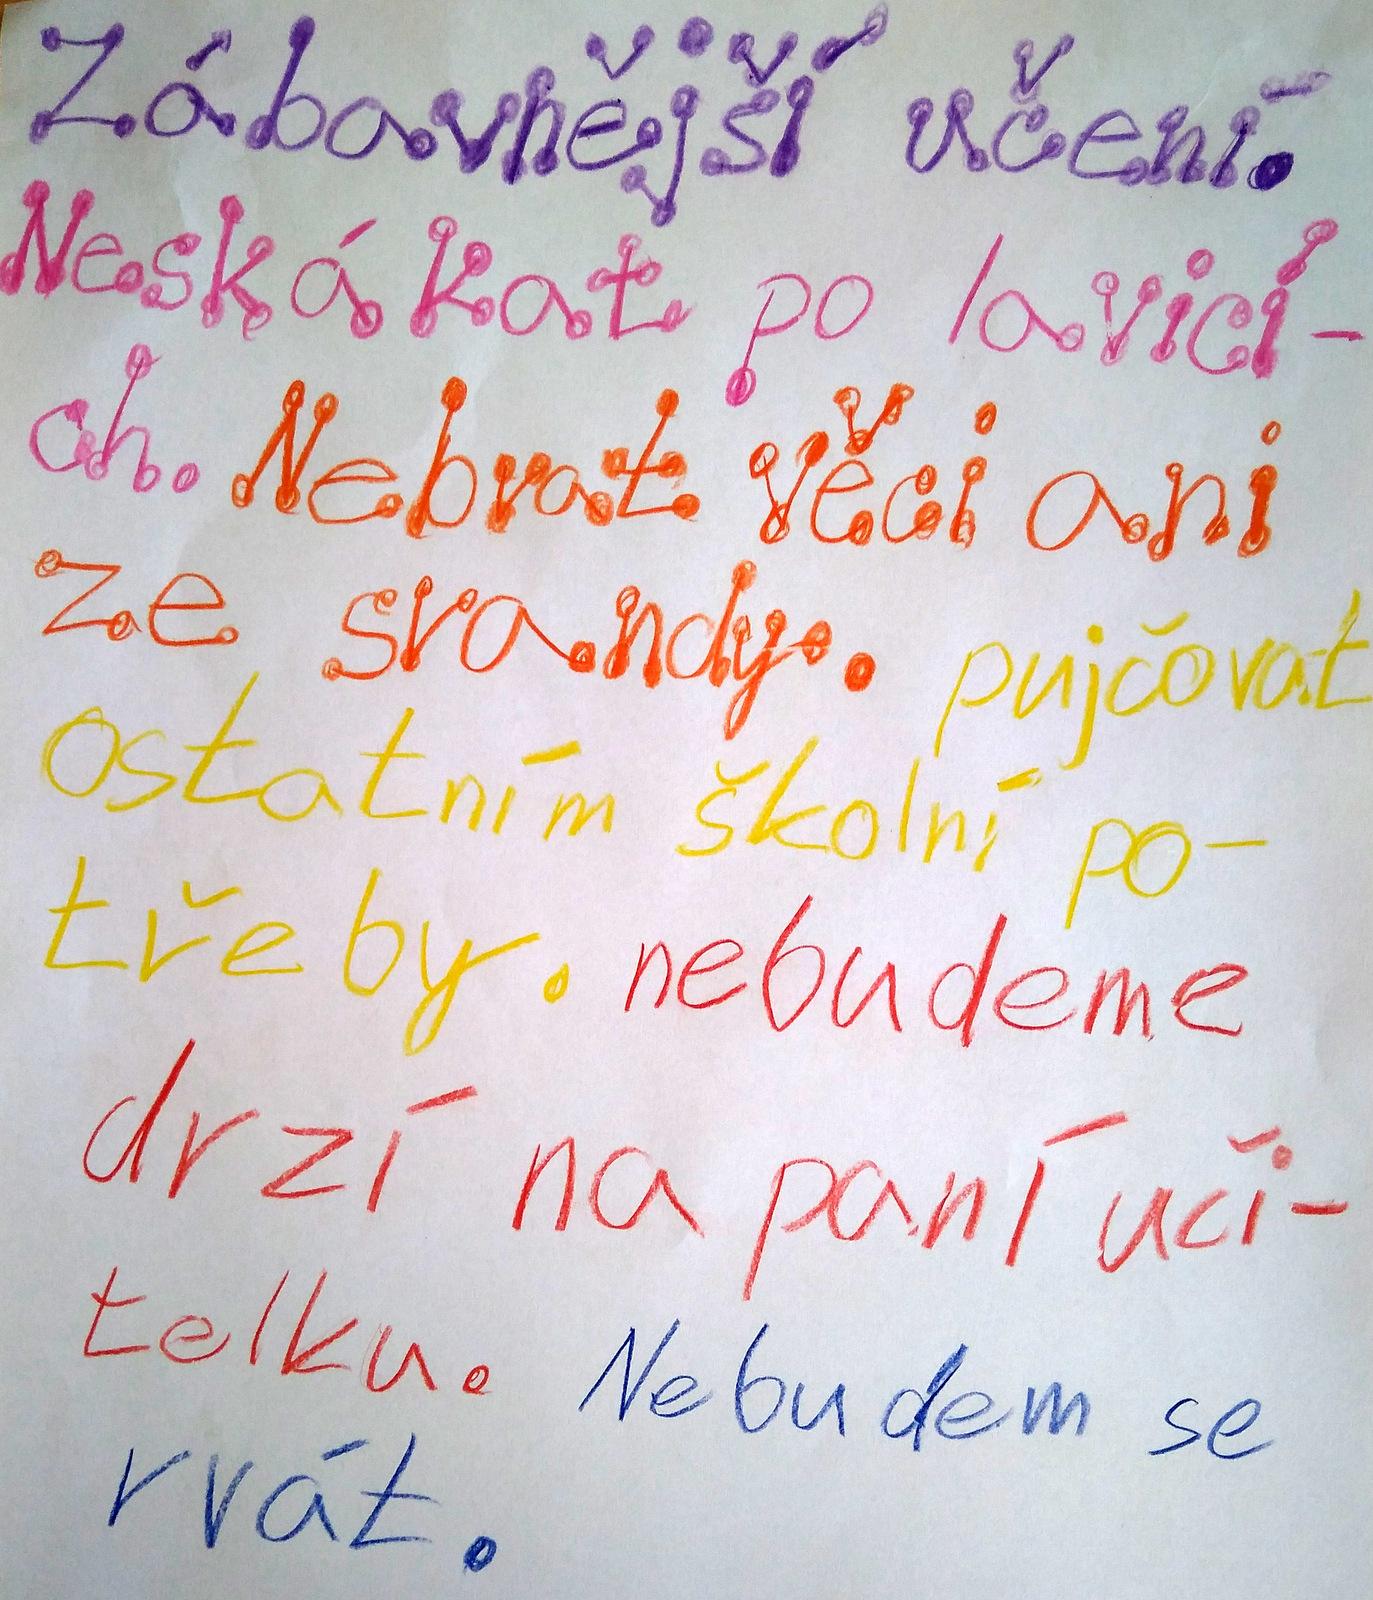 Zábavnější učení.
Neskákat po lavicí-
ch. Nebrat věci ani
ze srandy. pujčovat
ostatním školní po-
třeby. nebudeme
drzí na paní uči-
telku. Nebudem se
rvát.